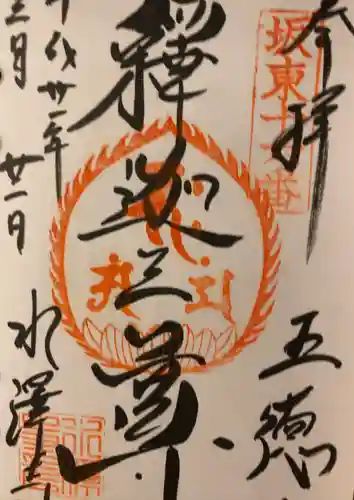 奉拝
五徳
坂東十六番
釋迦三尊
平成廿一年
三月廿一日
水澤寺